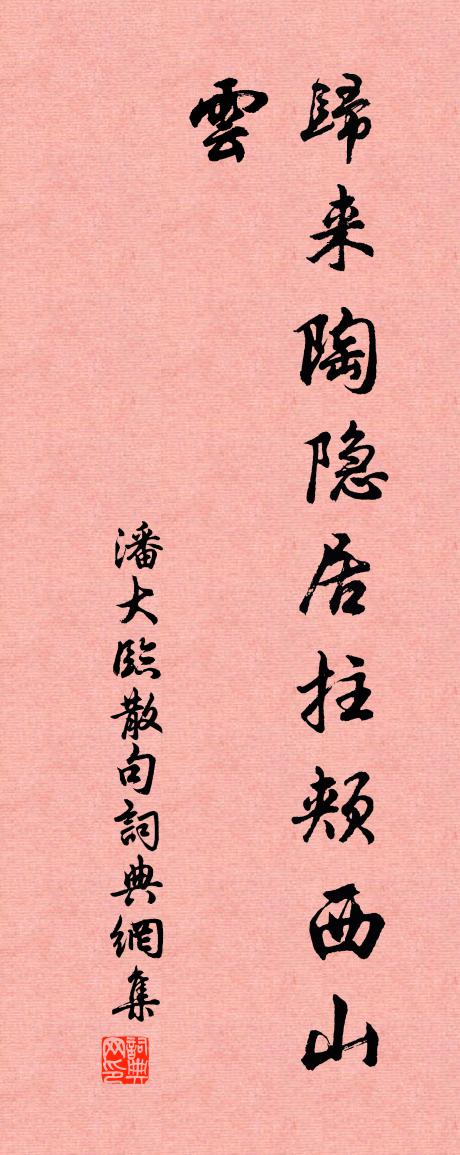 歸来陶隐居拄頰西山
雲
潘大臨散句詞典網集
詞典网印